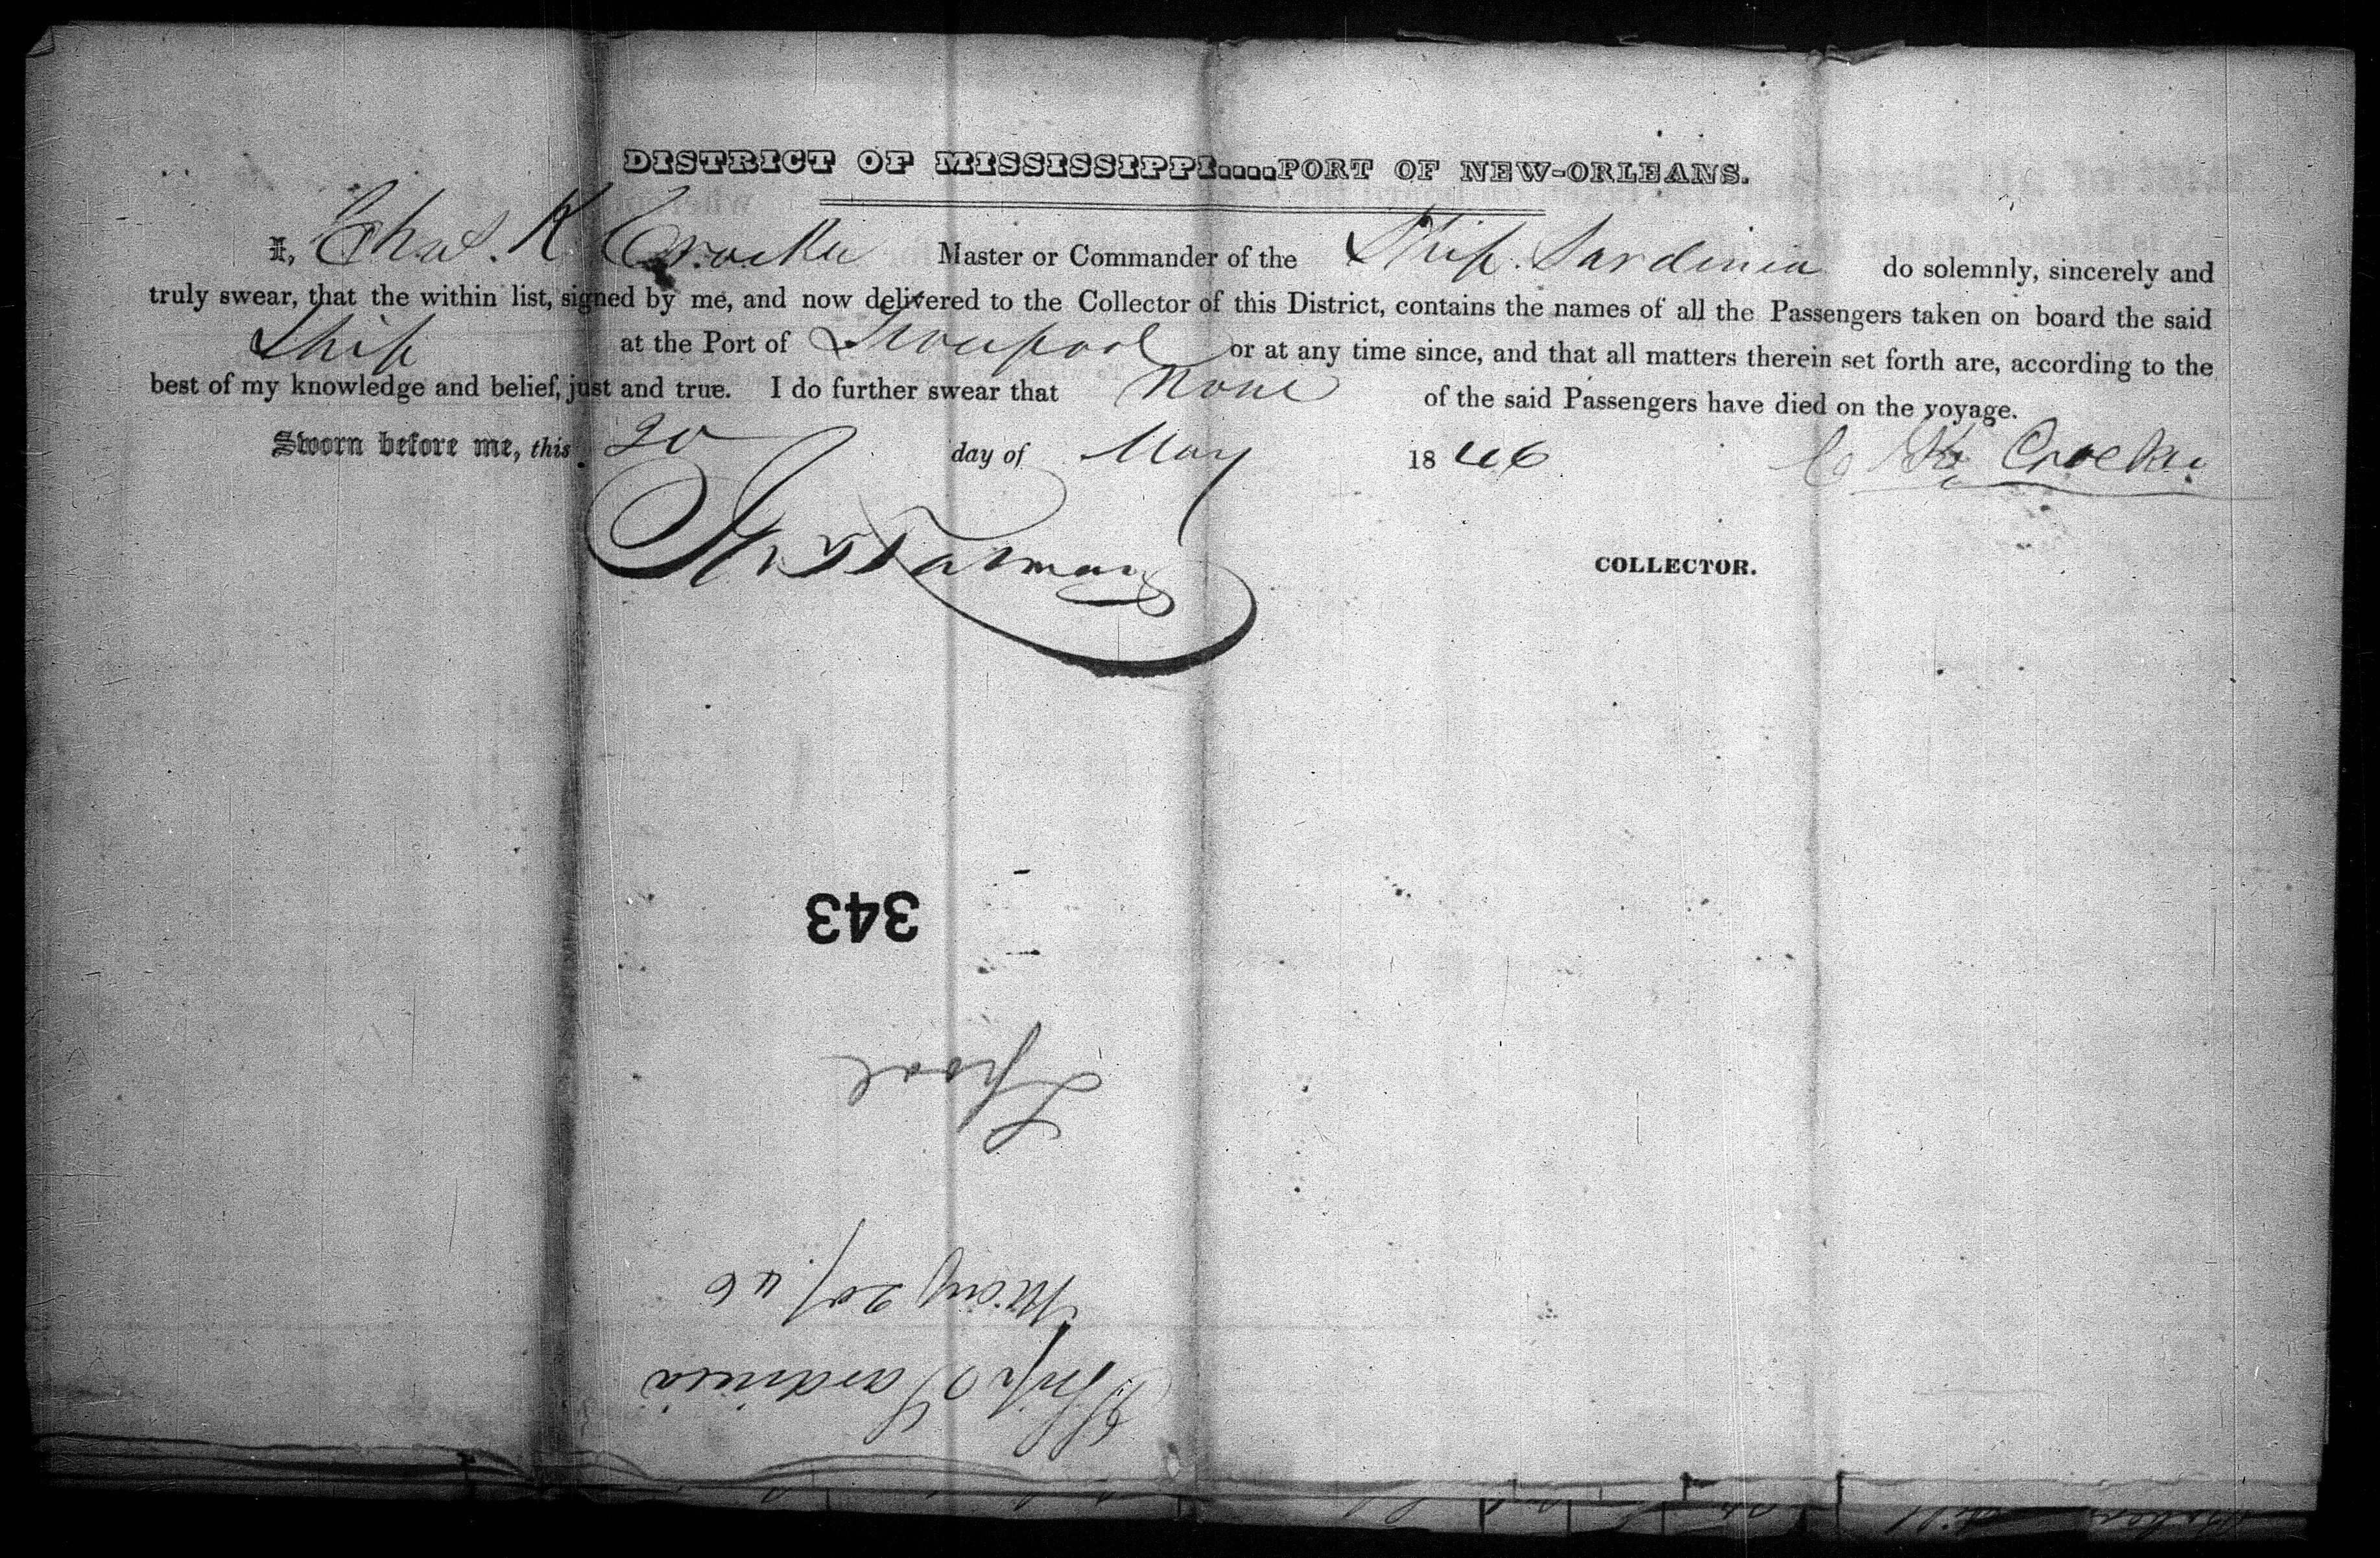 DISTRICT OF MISSISSIPPI....PORT OF NEW-ORLEANS.
I, Chas. K Crocker Master or Commander of the Ship. Sardinia do solemnly, sincerely and
truly swear, that the within list, signed by me, and now delivered to the Collector of this District, contains the names of all the Passengers taken on board the said
Ship at the Port of Liverpool or at any time since, and that all matters therein set forth are, according to the
best of my knowledge and belief, just and true. I do further swear that None of the said Passengers have died on the yoyage.
Sworn before me, this 20 day of May 1846 C K Crocker
COLLECTOR.
343
Lpool
Ship Sardinia
May 20/46